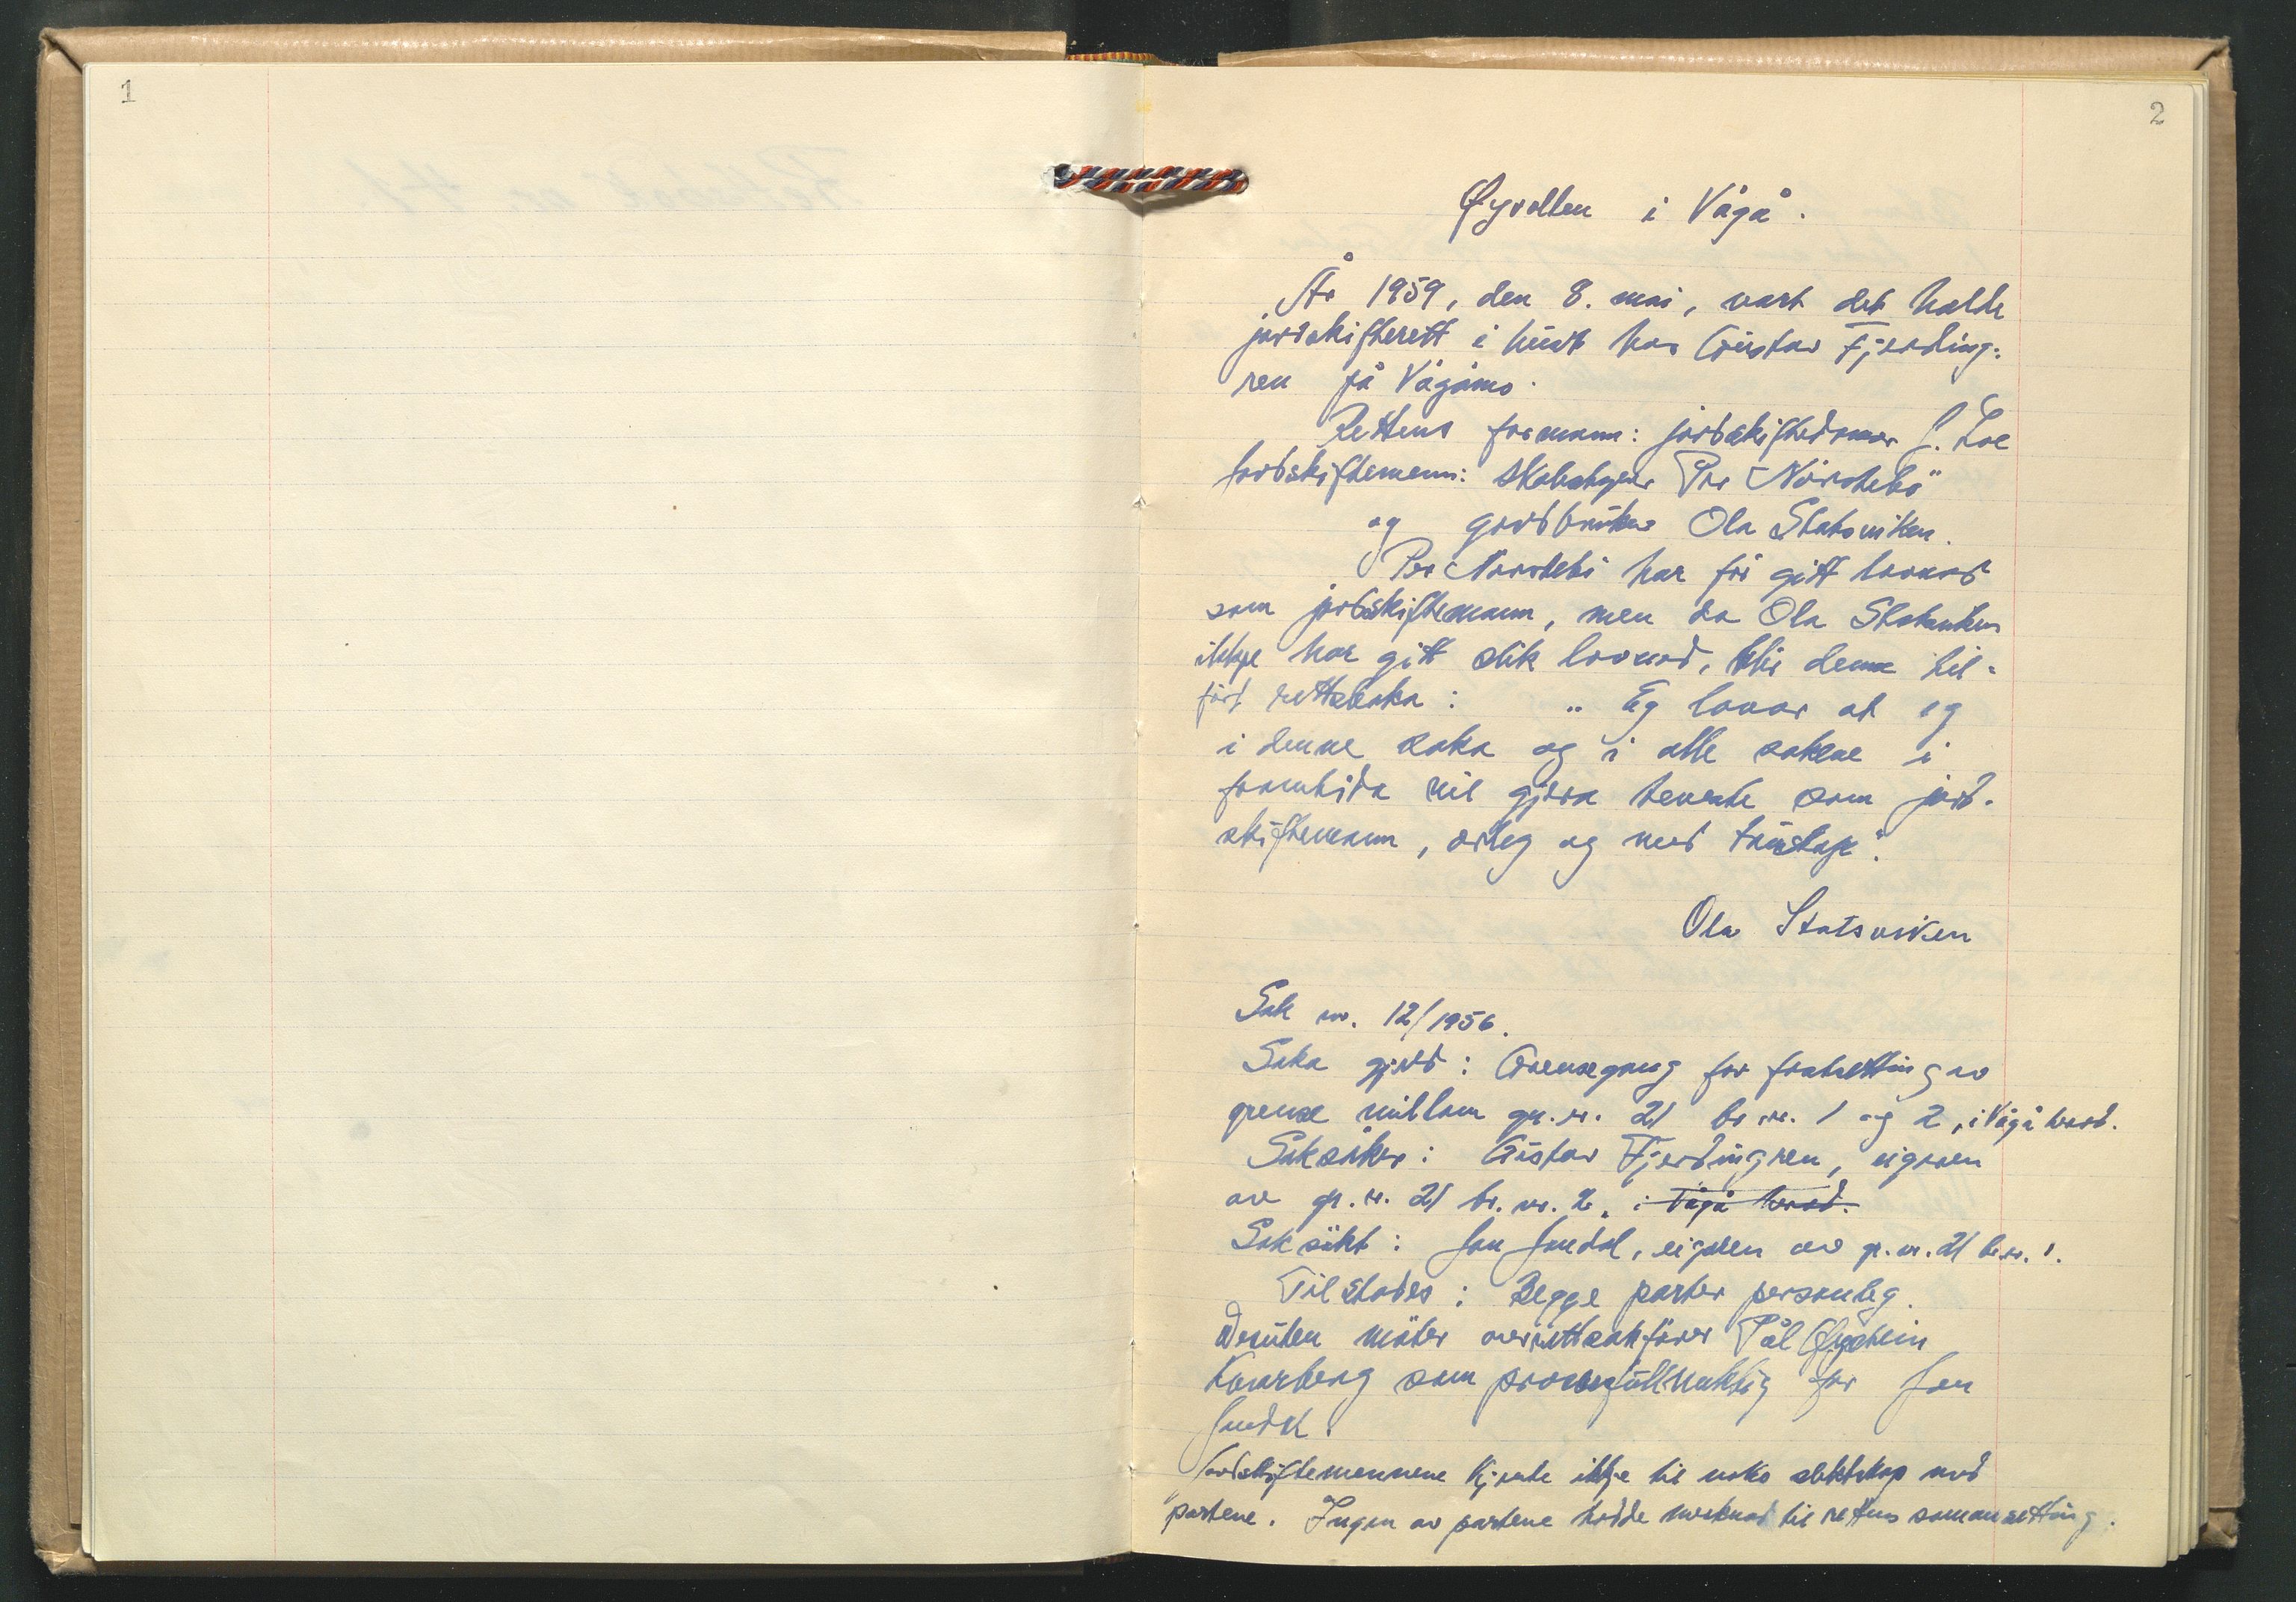 1
2
Øyvollen i Vågå.
År 1959, den 8. mai, vart det halde
jordskifterett i huset hos Gustav Fjerding-
ren på Vågåmo.
Rettens formann: jordskiftedomar J. Loe
Jordskiftemenn: Per Nørstebö
og gardbruker Ola Statsviken.
Per Nørstebö har för gitt lovnad
som jordskiftemann, men da Ola Statsviken
ikkje har gitt slik lovnad, blir denne til-
fört rettsboka: „Eg lovar at eg
i denne saka og i alle sakene i
framtida vil gjera teneste som jord-
skiftemann, ærleg og med truskap".
Ola Statsviken
Sak nr. 12/1956.
Saka gjeld: Grensegang for fastsetting av
grense millom gr. nr. 21 br. nr. 1 og 2, i Vågå herad.
Saksöker: Gustav Fjerdingren, eigaren
av gr. nr. 21 br. nr. 2, i Vågå herad.
Saksökt: Jon Jondal, eigaren av gr. nr. 21 br. nr. 1.
Til stades: Begge parter personleg.
Desuten möter overrettsakförer Pål Øystein
Kvarberg som prosessfullmektig for Jon
Jondal.
Jordskiftemennene kjente ikkje til noko slektskap med
partene. Ingen av partene hadde merknad til rettens samansetting.